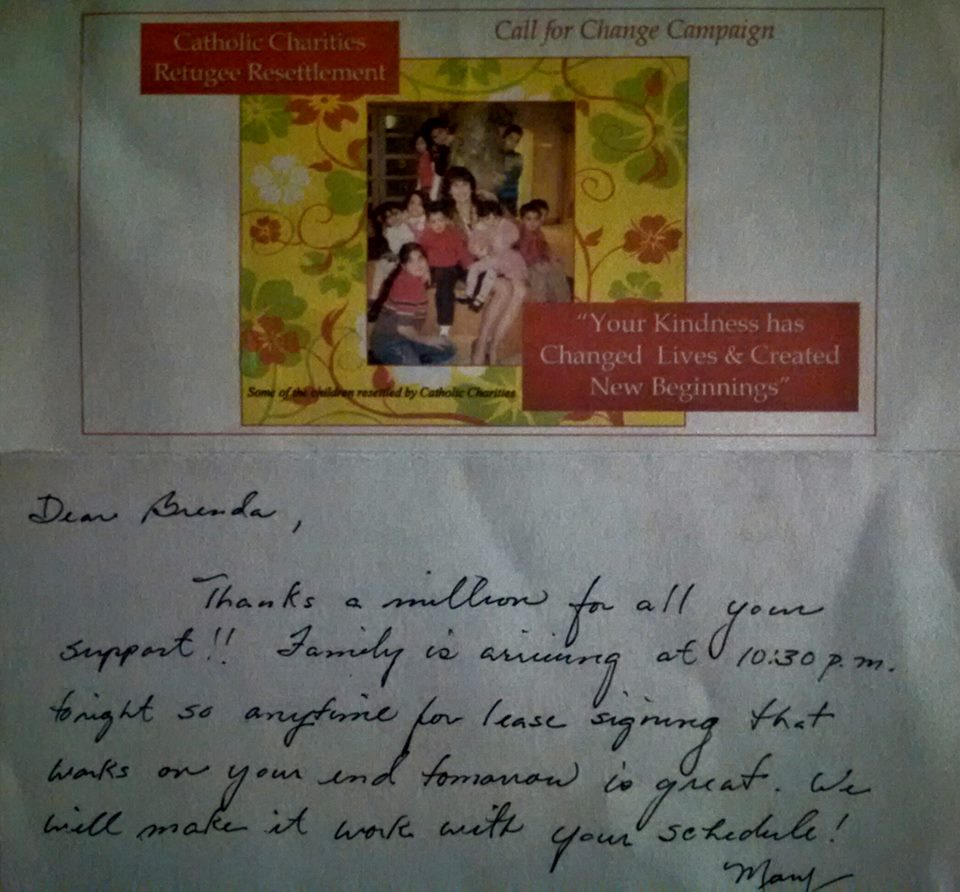 Call for Change Campaign
Catholic Charities
Refugee Resettlement
"Your Kindness has
Changed Lives & Created
New Beginnings"
Some of the children resettled by Catholic Charities
Dear Brenda,
Thanks a million for all your
support!! Family is arriving at 10:30 p.m.
tonight so anytime for lease signing that
works on your end tomorrow is great. We
will make it work with your schedule!
Mary